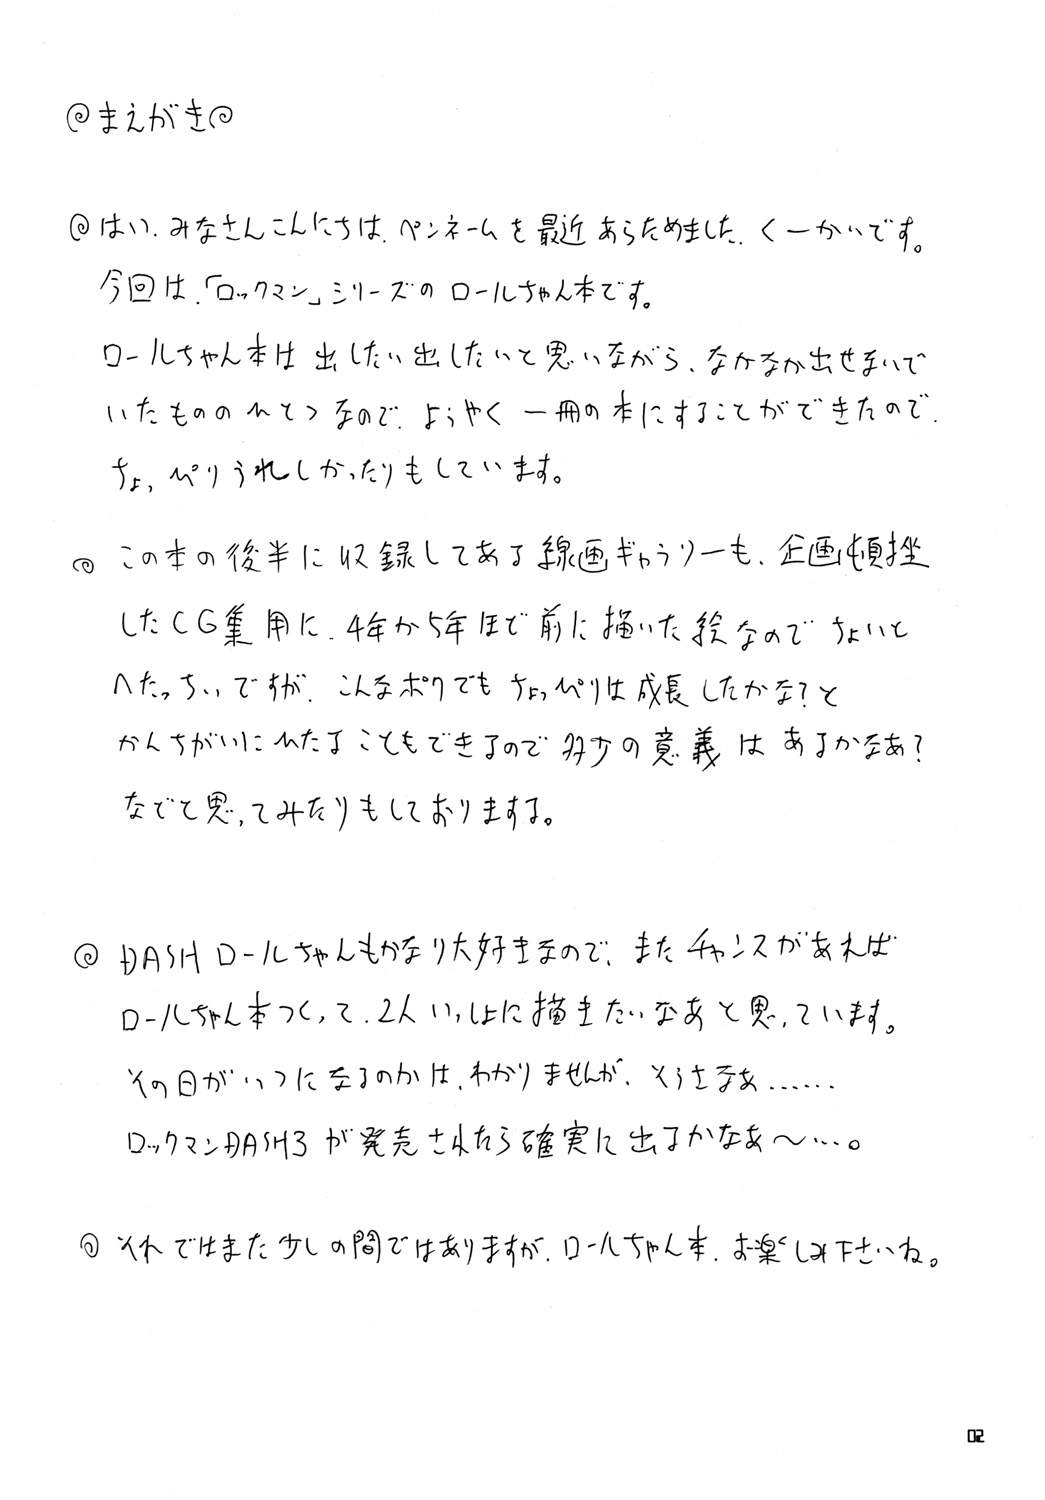 まえがき
はい、みなさんこんにちは、ペンネームを最近あらためました、くーかいです。
今回は、「ロックマン」シリーズのロールちゃん本です。
ロールちゃん本は出したい出したいと思いながら、なかなか出せまいで
いたもののひとつなので、ようやく一冊の本にすることができたので、
ちょっぴりうれしかったりもしています。
この本の後半に収録してある線画ギャラリーも、企画頓挫
したCG集用に、4年から5年ほど前に描いた絵なのでちょいと
へたっちぃですが、こんなボクでもちょっぴりは成長したかな?と
かんちがいにひたることもできるので多少の意義はあるかなあ?
などと思ってみたりもしておりまする。
DASHロールちゃんもかなり大好きなので、またチャンスがあれば
ロールちゃん本つくって、2人いっしょに描きたいなあと思っています。
その日がいつになるのかは、わかりませんが、そうさなあ……
ロックマンDASH3が発売されたら確実に出るかなあ～…。
それではまた少しの間ではありますが、ロールちゃん本、お楽しみ下さいね。
02